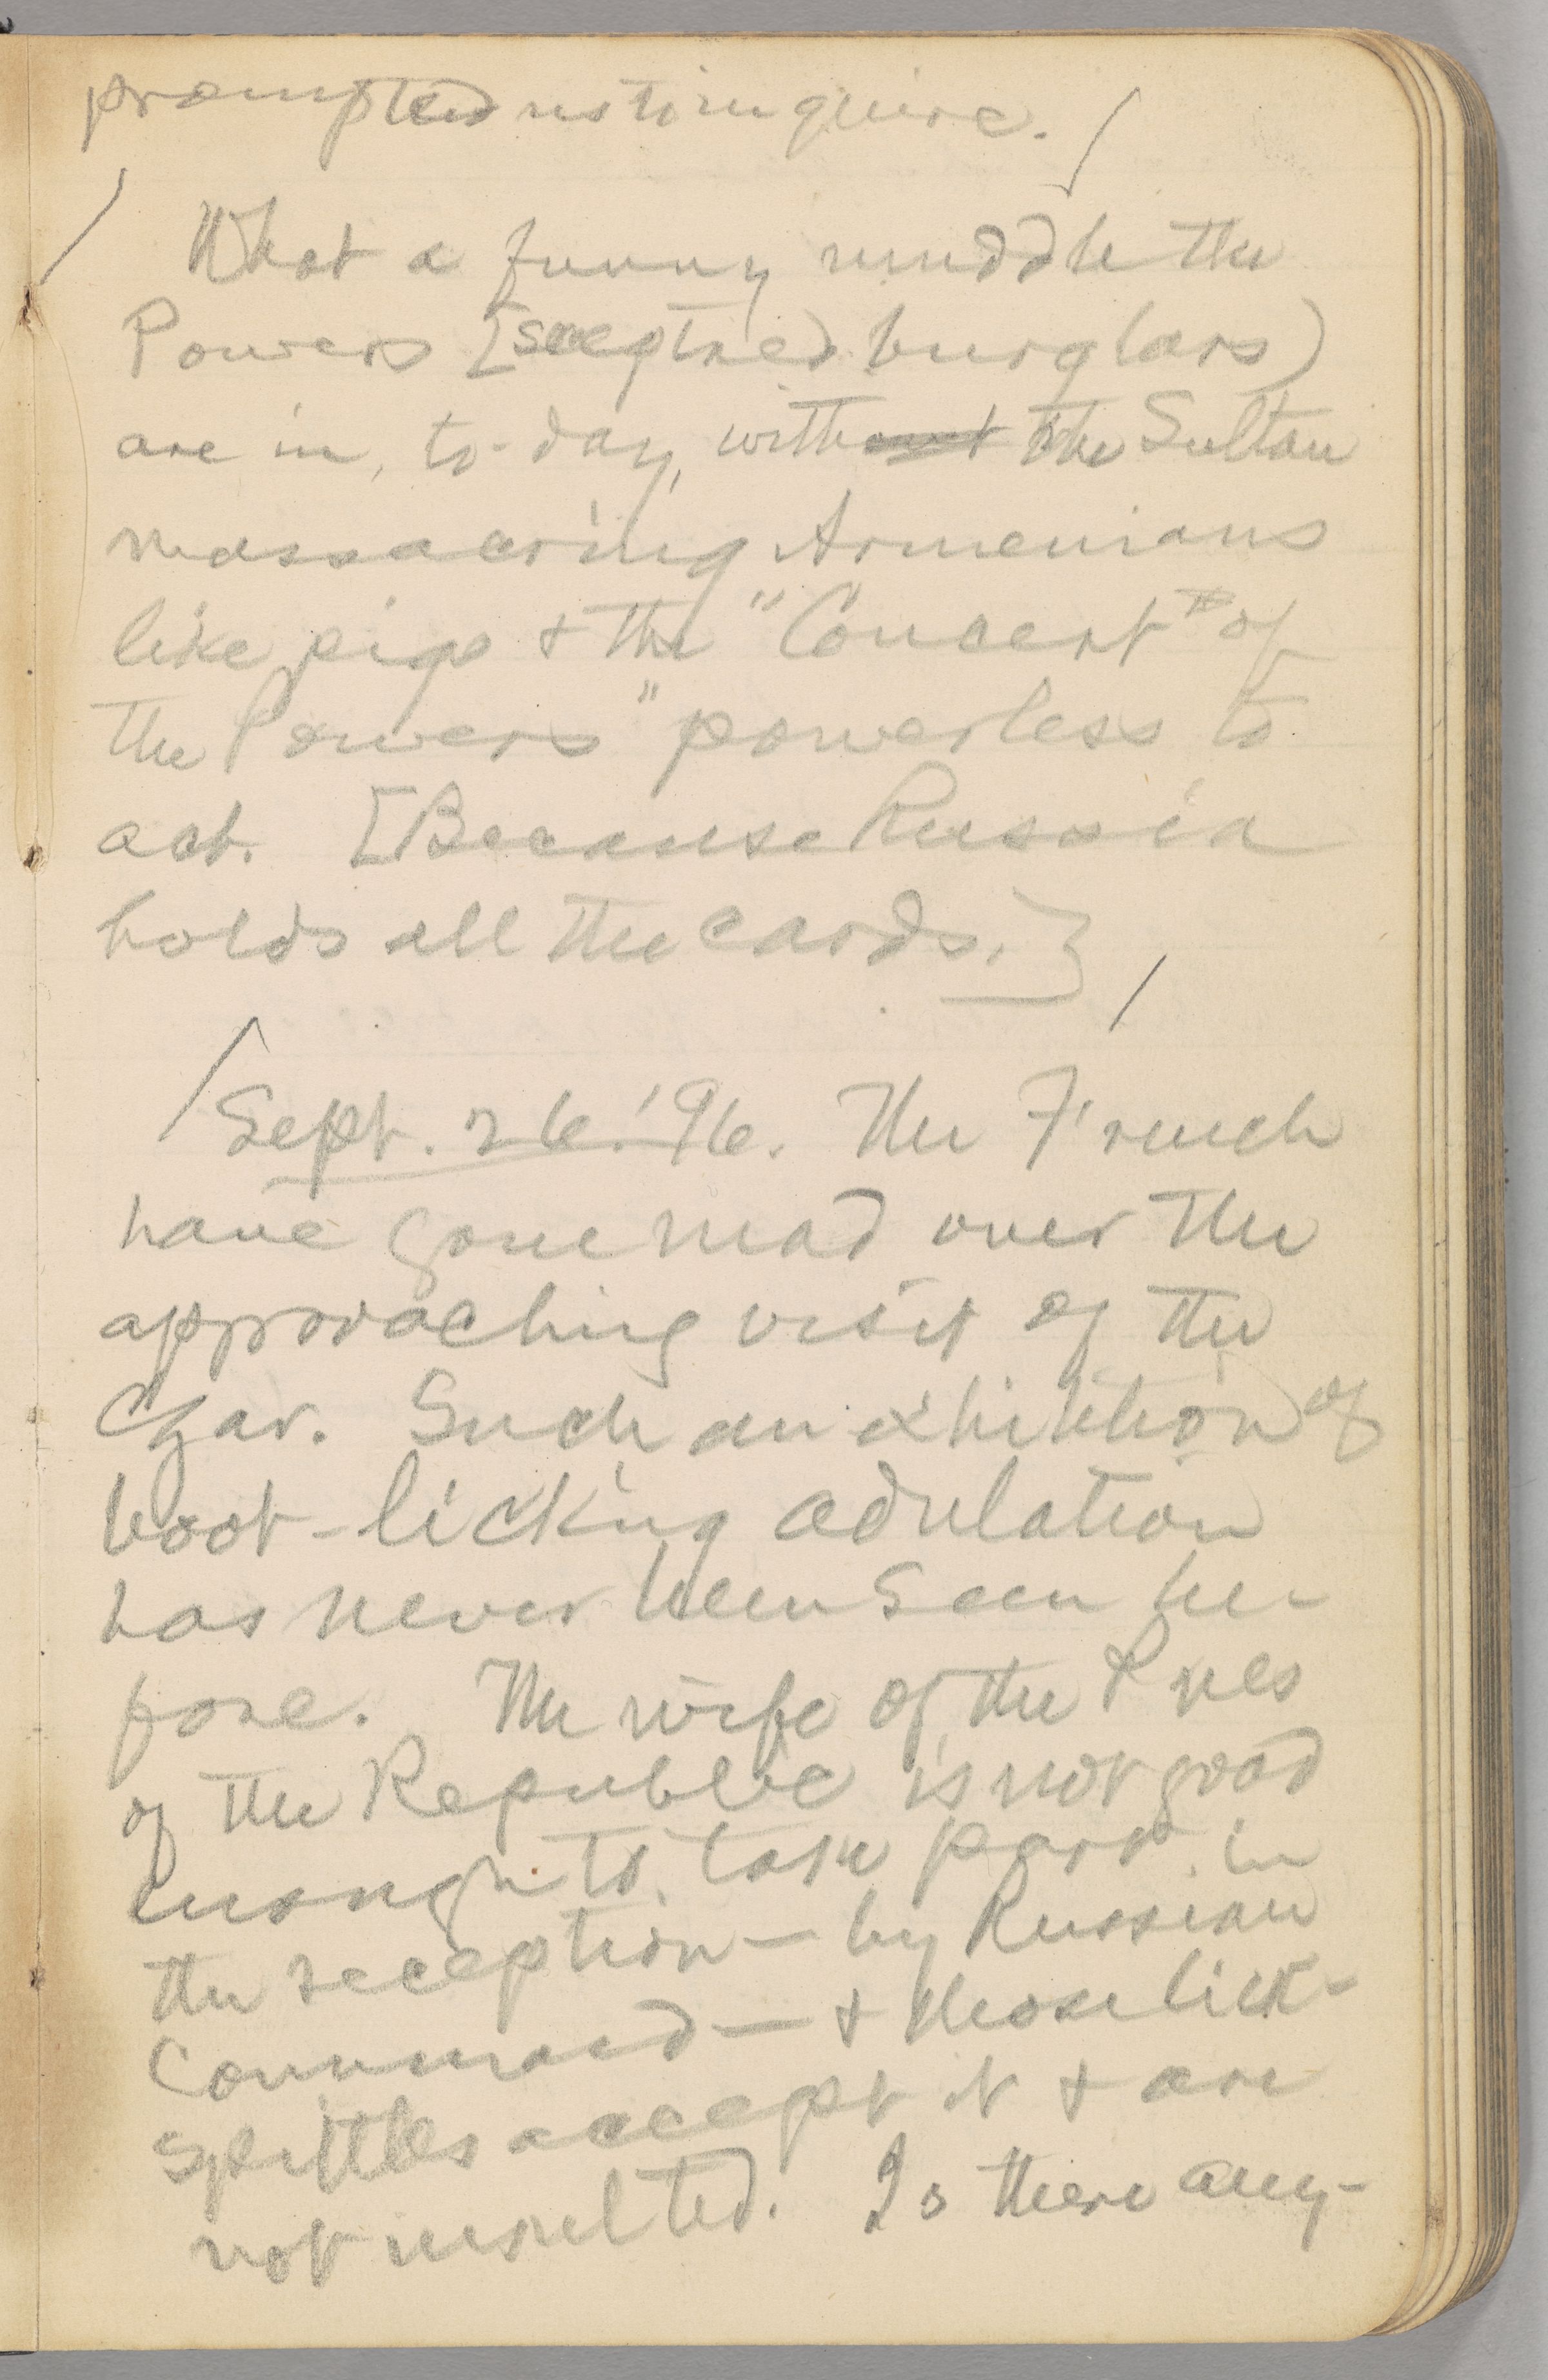 prompted us to inquire. /
/ What a funny muddle the
Powers [sceptred burglars)
are in, to-day, without the Sultan
massacring Armenians
like pigs & the "Concert of
the Powers" powerless to
act. [Because Russia
holds all the cards.] /
/ Sept. 26. '96. The French
have gone mad over the
approaching visit of the
Czar. Such an exhibition of
boot-licking adulation
has never been seen be-
fore. The wife of the Pres
of the Republic is not good
enough to take part in
the reception — by Russian
Command — & those lick-
spittles accept it & are
not insulted. Is there any-